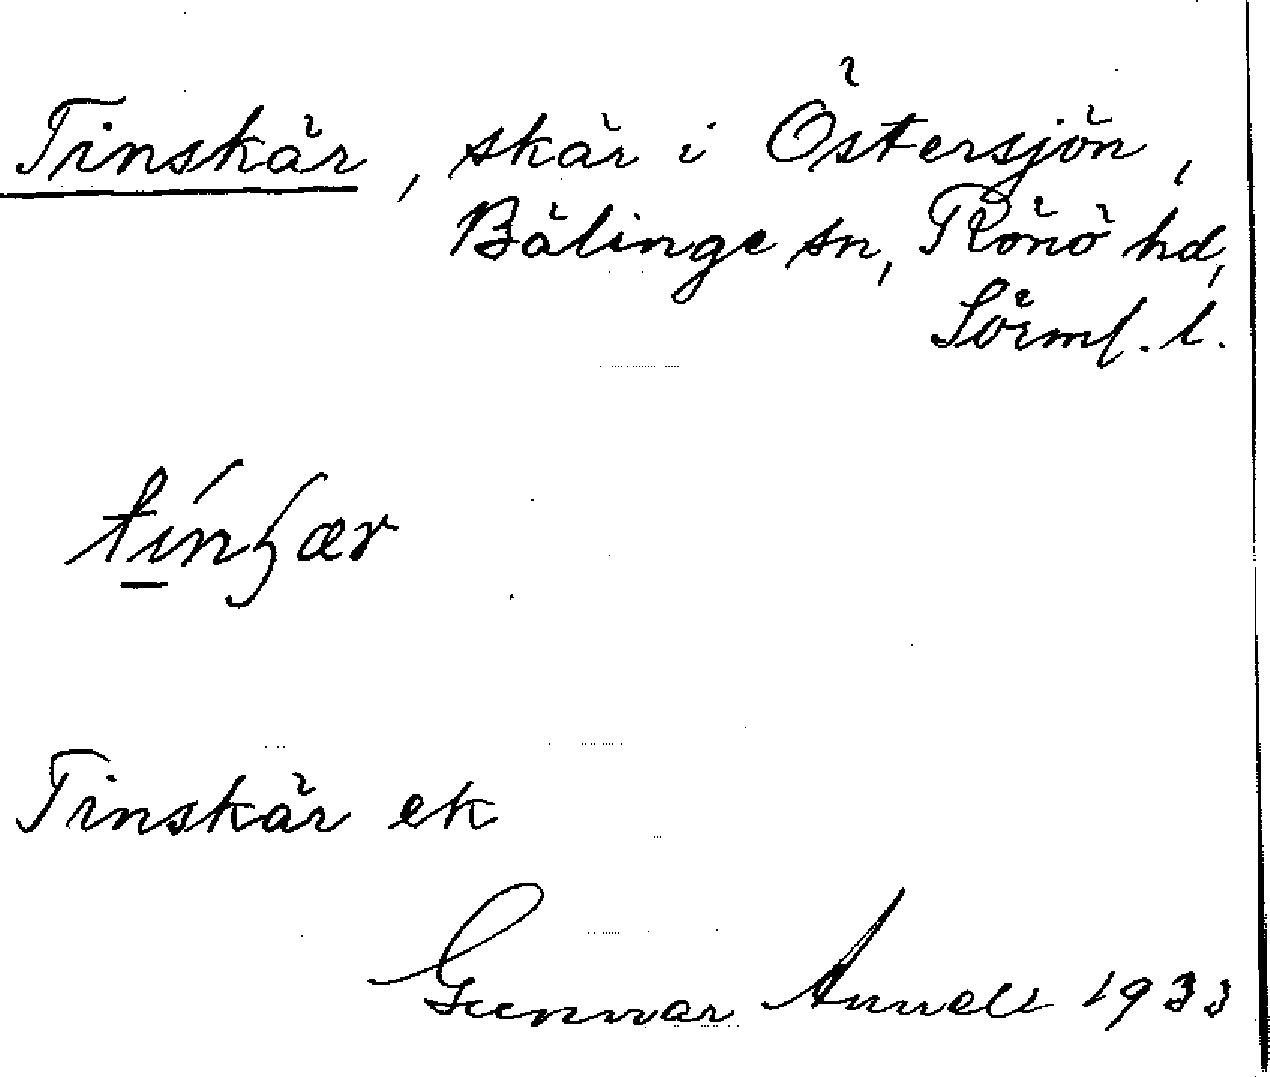 Tinskär, skär i Östersjön,
Bälinge sn, Rönö hd,
Sörml. l.
Tinskär ek
Gunnar 1933